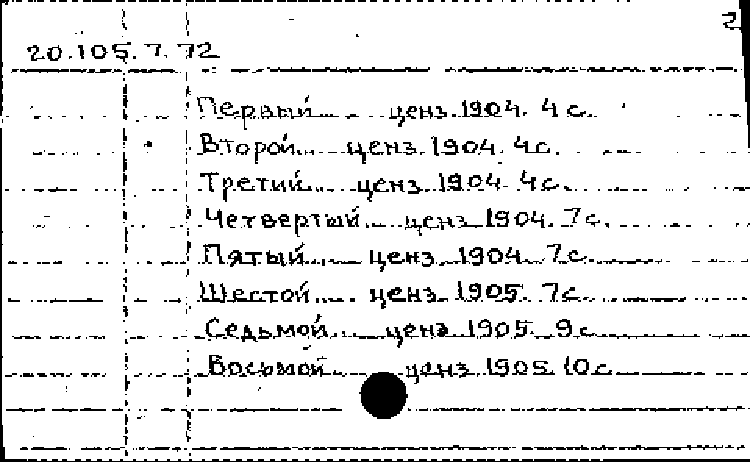 2
20.105.7.72
Первый... ценз. 1904. 4 с.
Второй... ценз. 1904. 4 с.
Третий... ценз. 1904. 4 с.
Четвертый... ценз. 1904. 7 с.
Пятый... ценз. 1904. 7 с.
Шестой... ценз. 1905. 7 с.
Седьмой... ценз. 1905. 9 с.
Восьмой... ценз. 1905. 10 с.